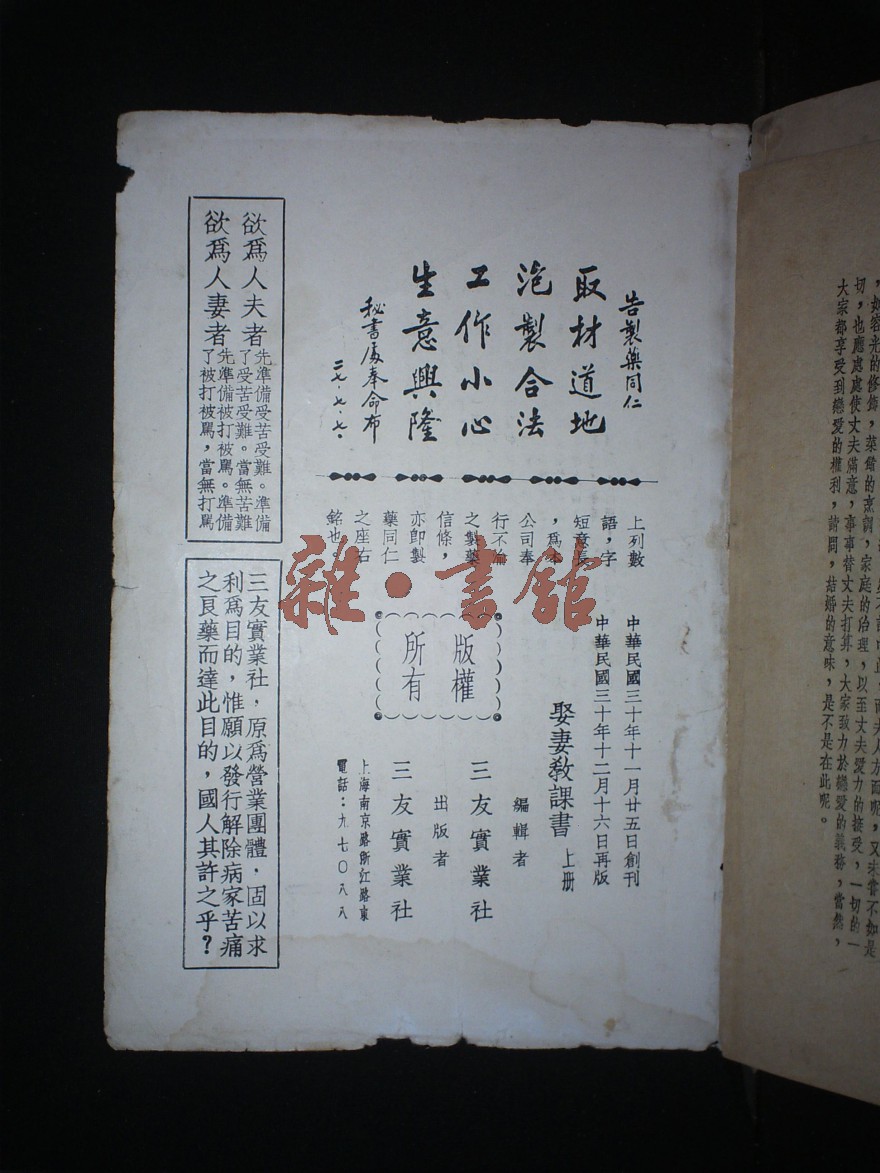 告製藥同仁
取材道地
泡製合法
工作小心
生意興隆
秘書處奉命布
二七·七·七·
上列數
語，字
短意長
，為本
公司奉
行不渝
之製藥
信條，
亦即製
藥同仁
之座右
銘也。
中華民國三十年十一月廿五日創刊
中華民國三十年十二月十六日再版
娶妻教課書 上册
編輯者
三友實業社
出版者
三友實業社
上海南京路浙江路東
電話：九七〇八八
版權
所有
欲爲人夫者先準備受苦受難。準備
了受苦受難。當無苦難
欲爲人妻者先準備被打被駡。準備
了被打被駡，當無打駡
三友實業社，原爲營業團體，固以求
利爲目的，惟願以發行解除病家苦痛
之良藥而達此目的，國人其許之乎？
雜·書舘
，如容光的修飾，菜餚的烹調，家庭的治理，以至丈夫愛力的接受，一切的一
切，也應處處使丈夫滿意，事事替丈夫打算，大家致力於戀愛的義務，當然，
大家都享受到戀愛的權利，請問，結婚的意味，是不是在此呢。